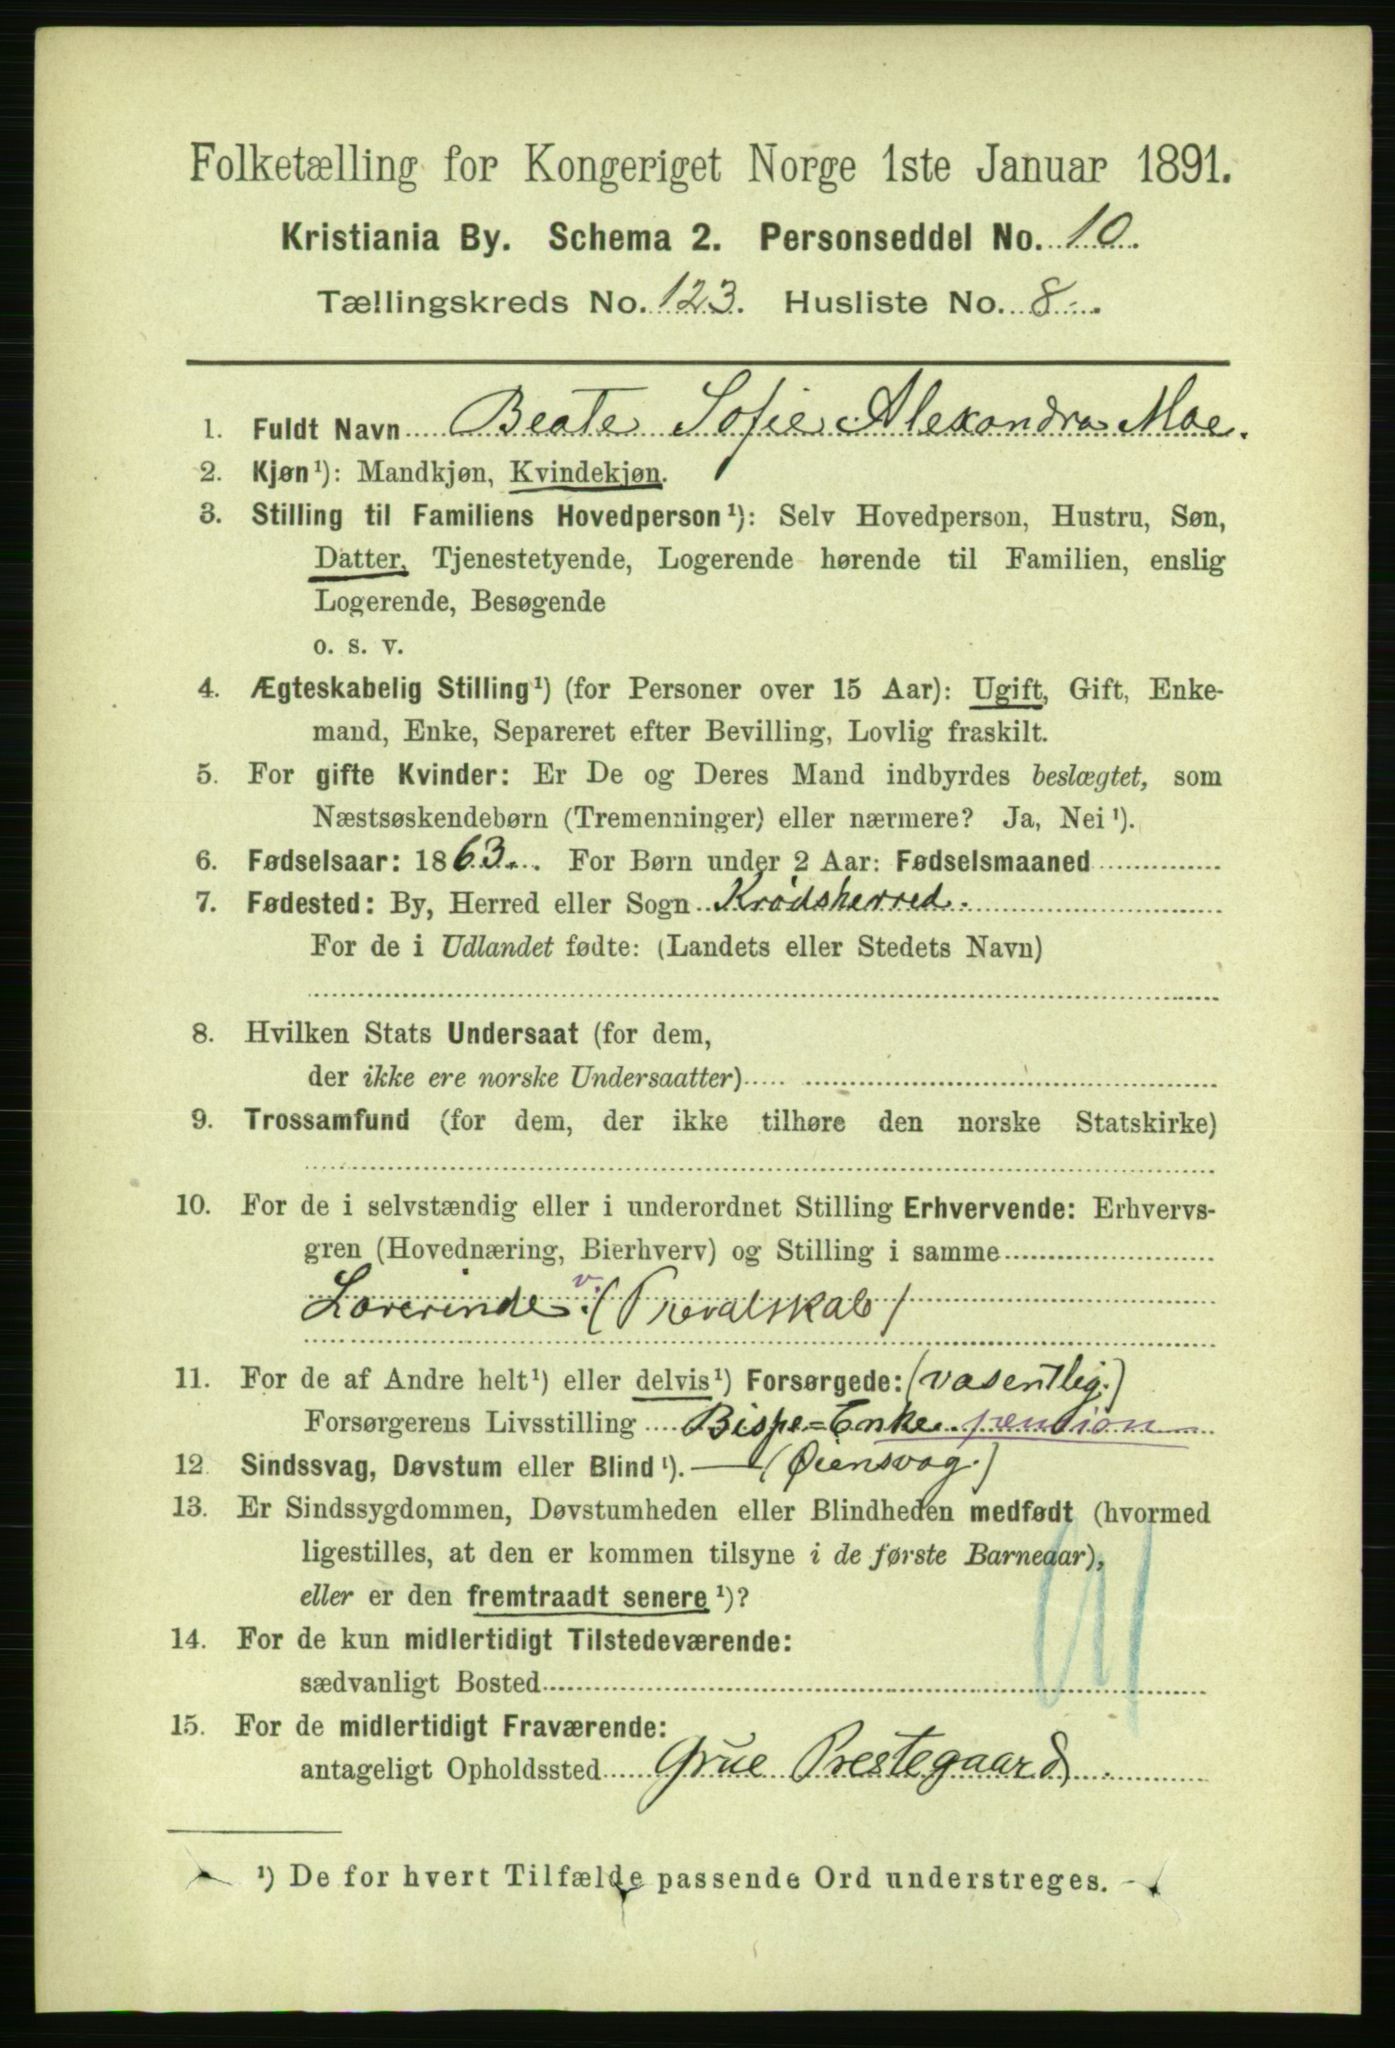 Folketælling for Kongeriget Norge 1ste Januar 1891.
Kristiania By. Schema 2. Personseddel No. 10.
Tællingskreds No. 123. Husliste No. 8.
1. Fuldt Navn Beate Sofie Alexandra Moe.
2. Kjøn¹): Mandkjøn, Kvindekjøn.
3. Stilling til Familiens Hovedperson¹): Selv Hovedperson, Hustru, Søn,
Datter, Tjenestetyende, Logerende hørende til Familien, enslig
Logerende, Besøgende
o. s. v.
4. Ægteskabelig Stilling¹) (for Personer over 15 Aar): Ugift, Gift, Enke-
mand, Enke, Separeret efter Bevilling, Lovlig fraskilt.
5. For gifte Kvinder: Er De og Deres Mand indbyrdes beslægtet, som
Næstsøskendebørn (Tremenninger) eller nærmere? Ja, Nei¹).
6. Fødselsaar: 1863. For Børn under 2 Aar: Fødselsmaaned
7. Fødested: By, Herred eller Sogn Krødsherred.
For de i Udlandet fødte: (Landets eller Stedets Navn)
8. Hvilken Stats Undersaat (for dem,
der ikke ere norske Undersaatter)
9. Trossamfund (for dem, der ikke tilhøre den norske Statskirke)
10. For de i selvstændig eller i underordnet Stilling Erhvervende: Erhvervs-
gren (Hovednæring, Bierhverv) og Stilling i samme
Lærerinde v. (Prevatskab)
11. For de af Andre helt¹) eller delvis¹) Forsørgede: (væsentlig.)
Forsørgerens Livsstilling Bispe=Enke. pension
12 Sindssvag, Døvstum eller Blind¹). — (Øiensvag.)
13. Er Sindssygdommen, Døvstumheden eller Blindheden medfødt (hvormed
ligestilles, at den er kommen tilsyne i de første Barneaar),
eller er den fremtraadt senere¹)?
14. For de kun midlertidigt Tilstedeværende:
sædvanligt Bosted
15. For de midlertidigt Fraværende:
antageligt Opholdssted Grue Prestegaard.
¹) De for hvert Tilfælde passende Ord understreges.